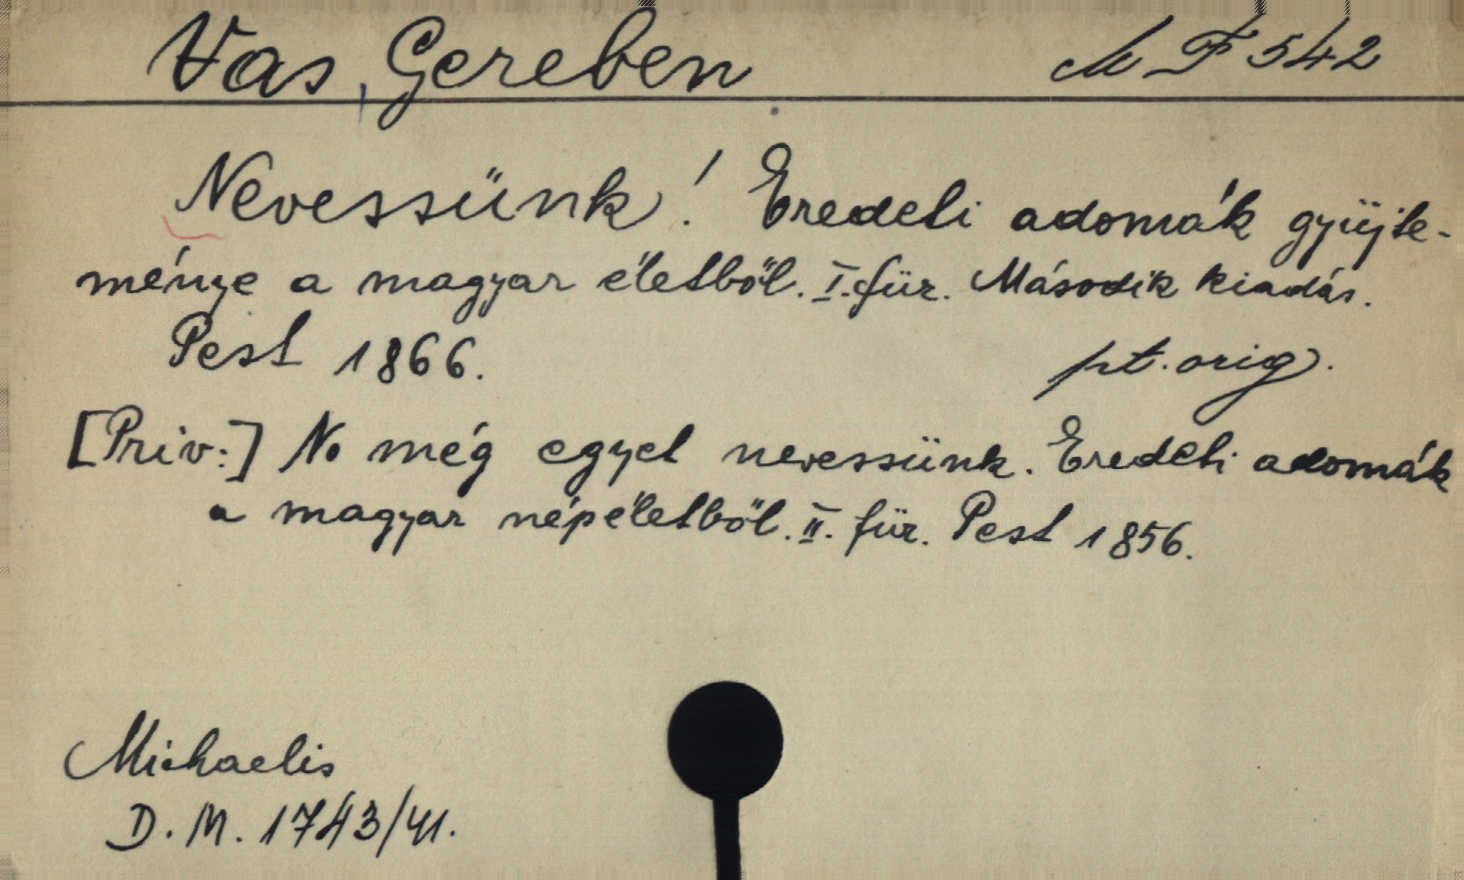 Vas, Gereben M F 542
Nevessünk! Eredeti adomák gyüjte-
ménye a magyar életből. I. für. Második kiadás.
Pest 1866. pt. orig.
[Priv:] No még egyet nevessünk. Eredeti adomák
a magyar népéletből. II. für. Pest 1856.
Michaelis
D. M. 1743/41.